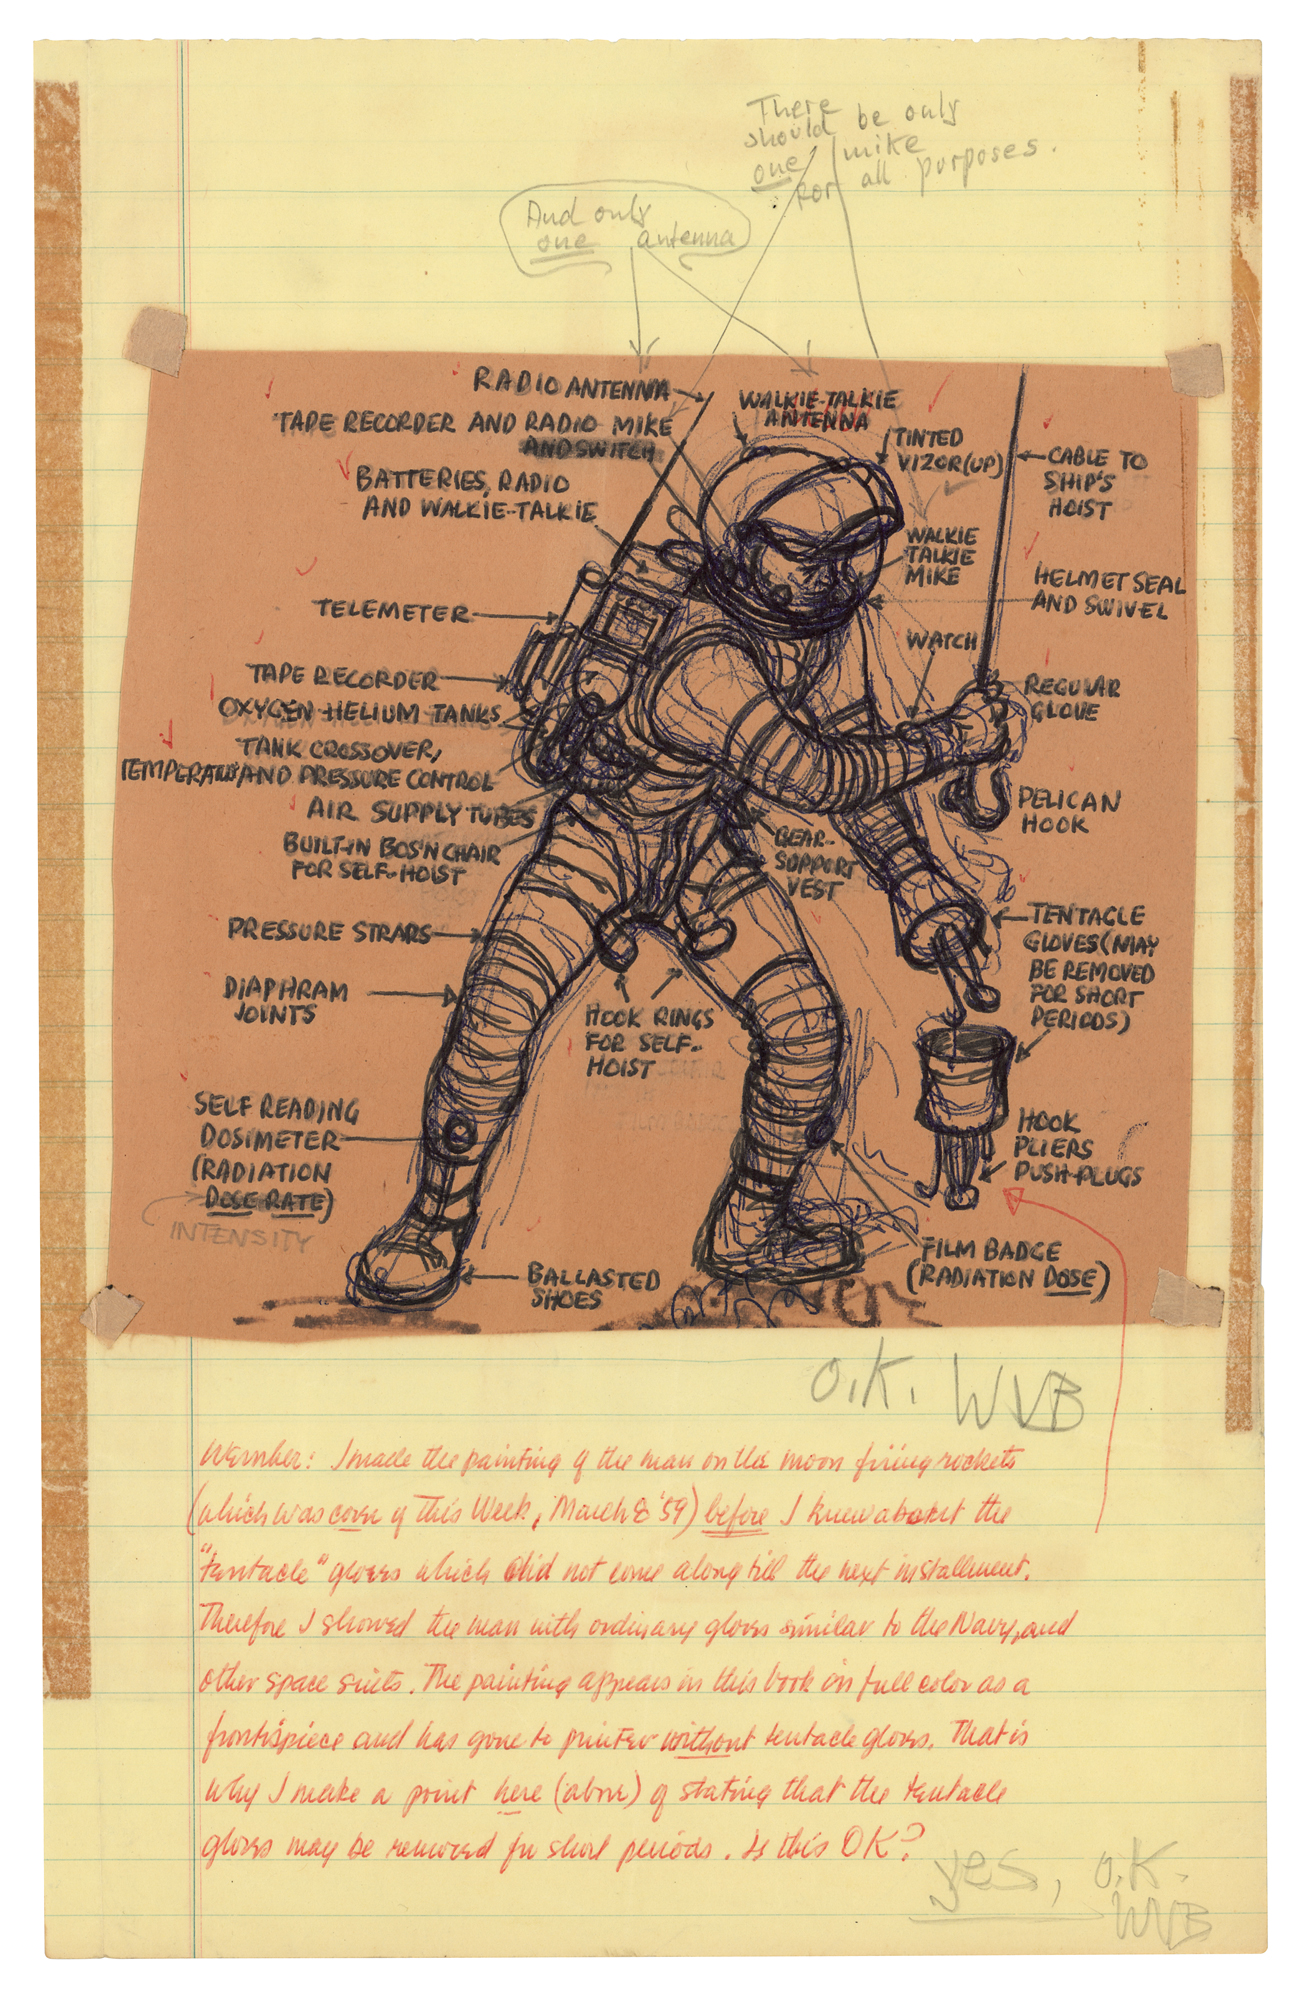 There
should be only
one mike
for all purposes.
And only
one antenna
RADIO ANTENNA
TAPE RECORDER AND RADIO MIKE
AND SWITCH
BATTERIES, RADIO
AND WALKIE-TALKIE
TELEMETER
TAPE RECORDER
OXYGEN-HELIUM TANKS
TANK CROSSOVER,
TEMPERATURE AND PRESSURE CONTROL
AIR SUPPLY TUBES
BUILT-IN BOS'N CHAIR
FOR SELF-HOIST
PRESSURE STRAPS
DIAPHRAM
JOINTS
SELF READING
DOSIMETER
(RADIATION
DOSE RATE)
INTENSITY
BALLASTED
SHOES
HOOK RINGS
FOR SELF-
HOIST
WALKIE-TALKIE
ANTENNA
TINTED
VIZOR (UP)
CABLE TO
SHIP'S
HOIST
WALKIE
TALKIE
MIKE
HELMET SEAL
AND SWIVEL
WATCH
REGULAR
GLOVE
PELICAN
HOOK
GEAR-
SUPPORT
VEST
TENTACLE
GLOVES (MAY
BE REMOVED
FOR SHORT
PERIODS)
HOOK
PLIERS
PUSH-PLUGS
FILM BADGE
(RADIATION DOSE)
O.K. WVB
Wernher: I made the painting of the man on the moon firing rockets
(which was cover of This Week, March 8 '59) before I knew about the
"tentacle" gloves which did not come along till the next installment.
Therefore I showed the man with ordinary gloves similar to the Navy, and
other space suits. The painting appears in this book in full color as a
frontispiece and has gone to printer without tentacle gloves. That is
why I make a point here (above) of stating that the tentacle
gloves may be removed for short periods. Is this OK?
yes, O.K.
WVB